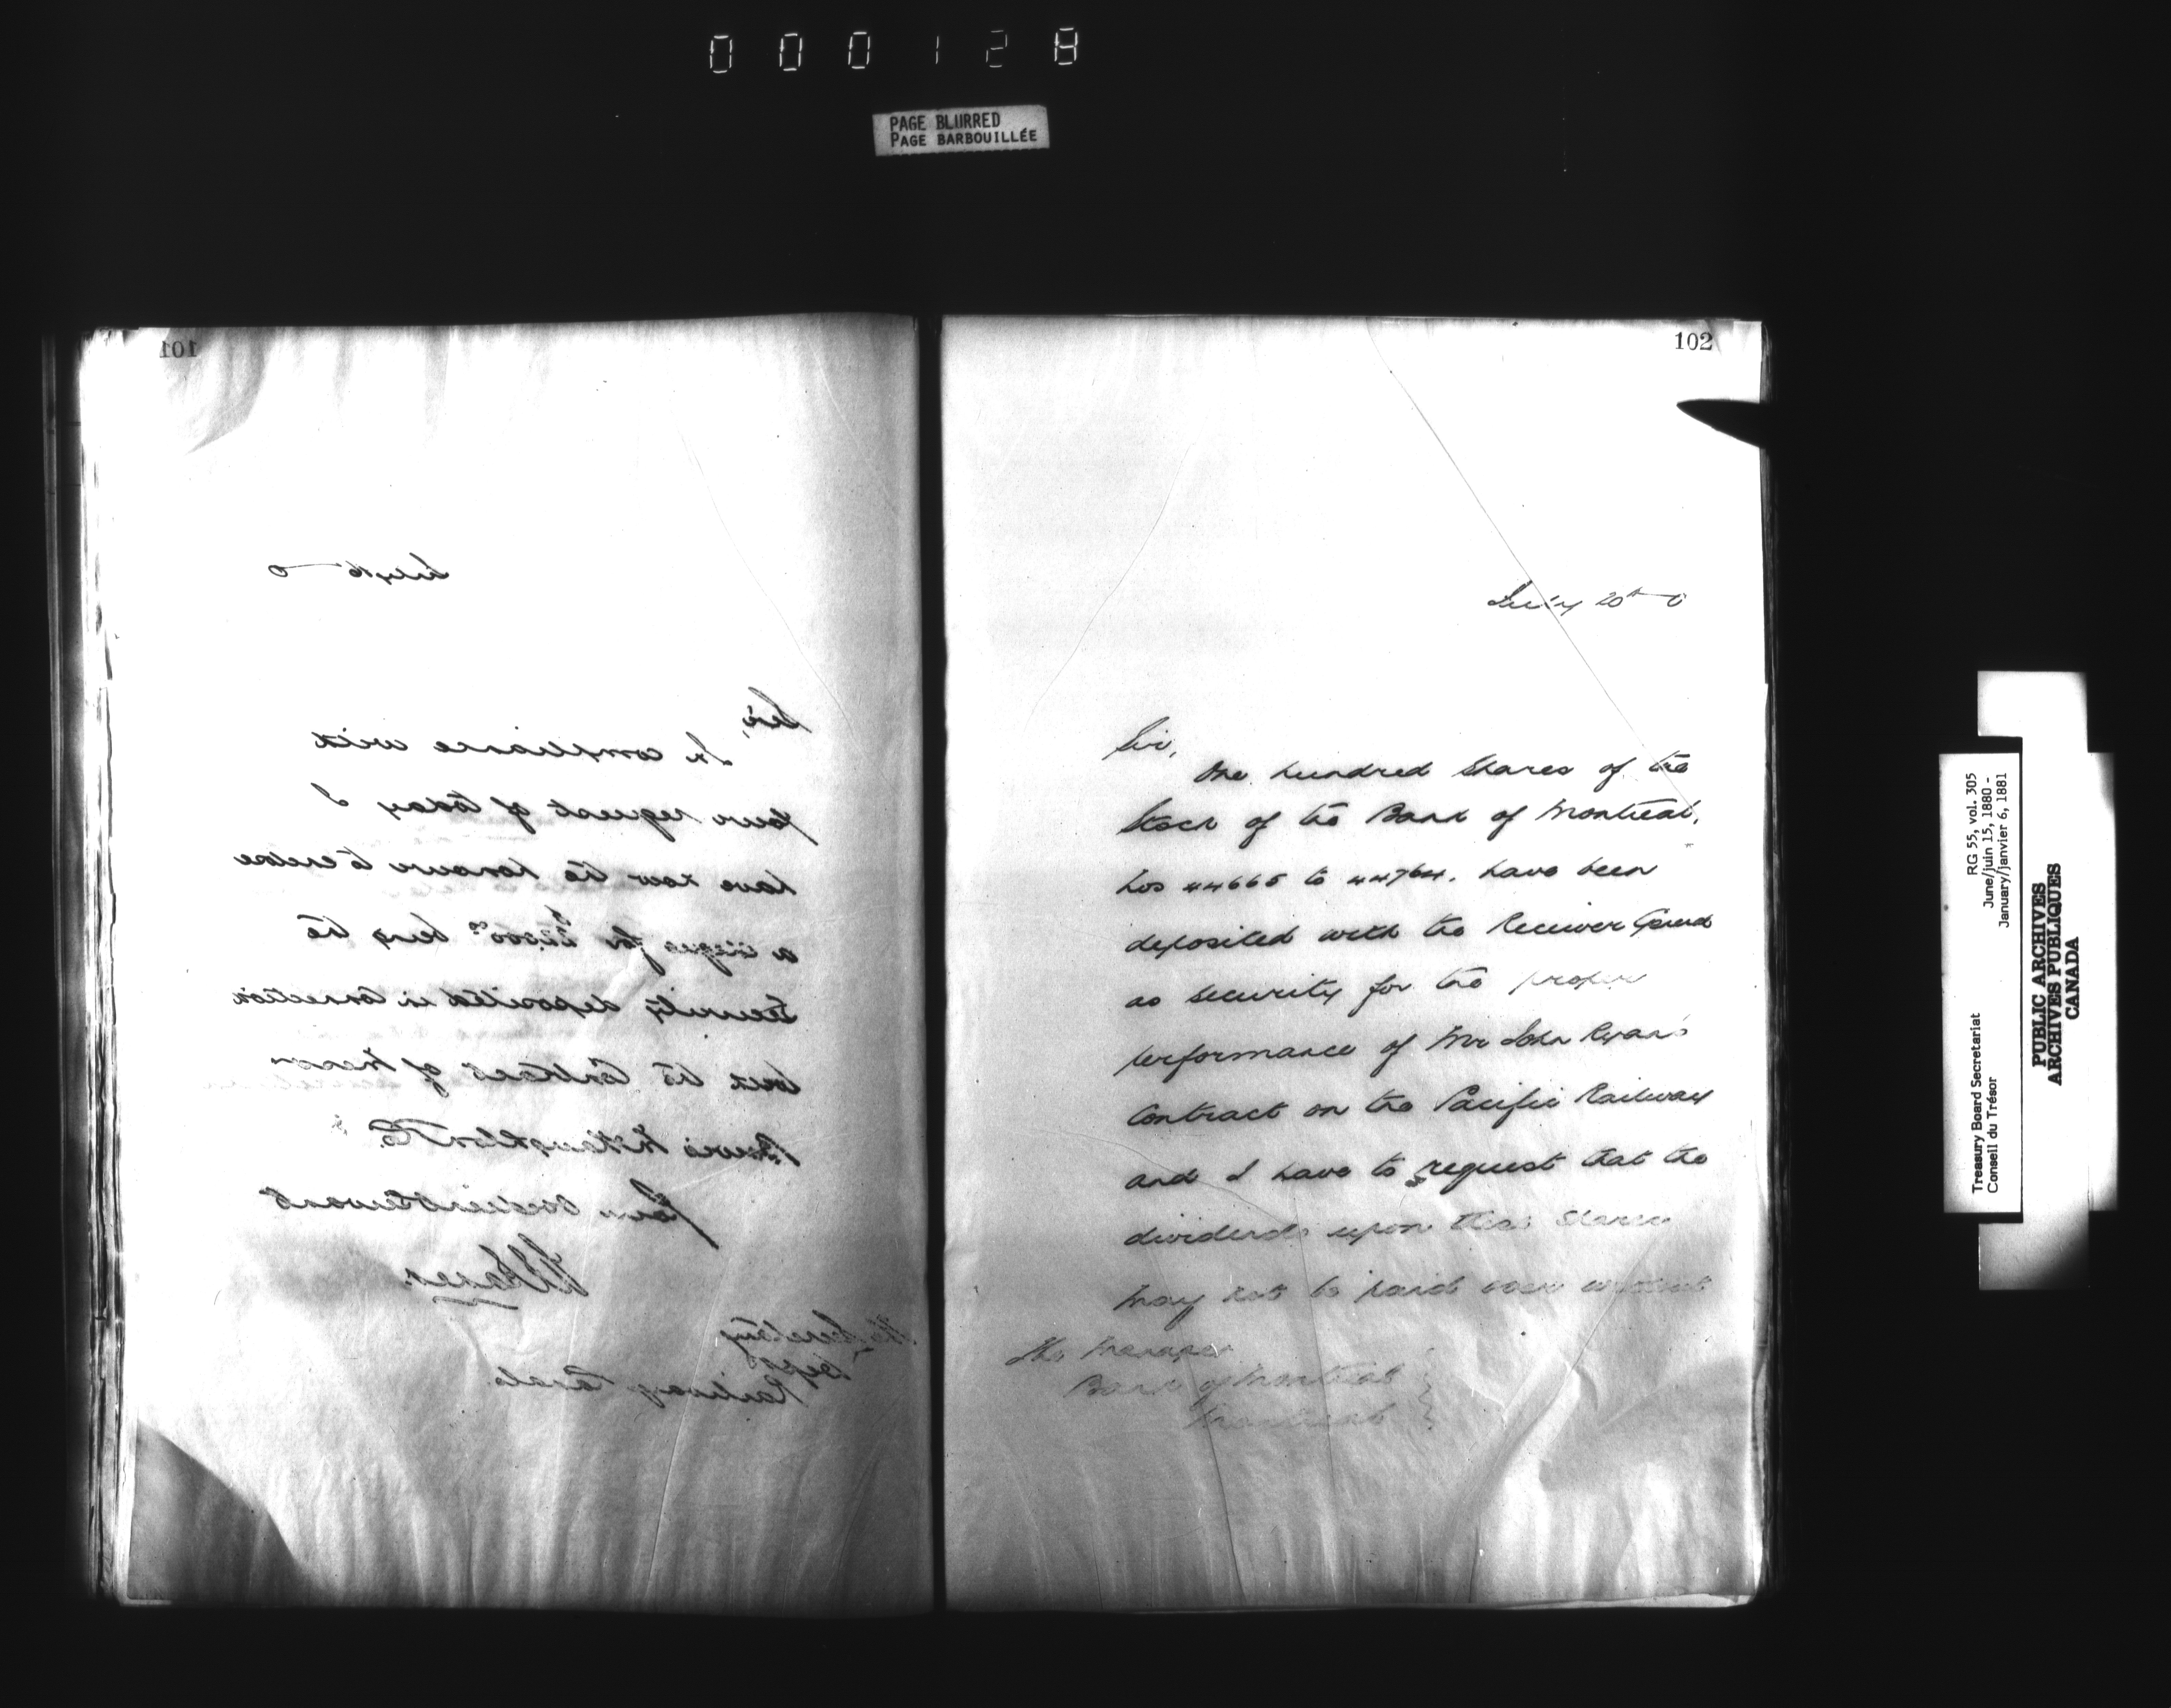 000128
PAGE BLURRED
PAGE BARBOUILLÉE
101
July 16 0
Sir,
In compliance with
your request of today I
have now the honour to enclose
a cheque for being the
Security deposited in connection
with the Contract of Messrs
Bowie McNaughton & Co.
Your obedient Servant
The Secretary
Dept
Railways Canals
102
July 20th 0
Sir,
One hundred shares of the
Stock of the Bank of Montreal,
Nos 44665 to 44764, have been
deposited with the Receiver General
as security for the proper
performance of Mr John Ryan's
Contract on the Pacific Railway
and I have to request that the
dividends upon these shares
may not be paid over without
The Manager
Bank of Montreal
Montreal
Treasury Board Secretariat
Conseil du Trésor
RG 55, vol. 305
June/juin 15, 1880 -
January/janvier 6, 1881
PUBLIC ARCHIVES
ARCHIVES PUBLIQUES
CANADA